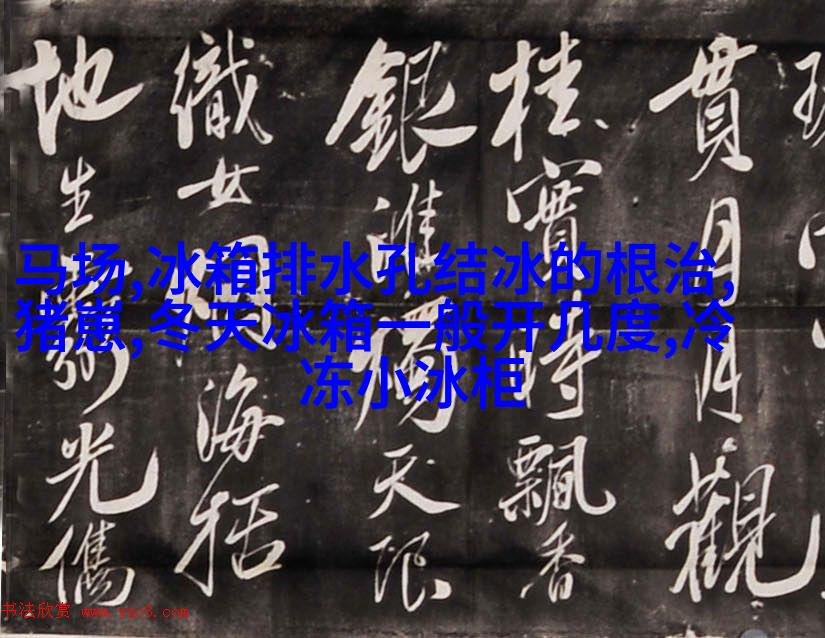 貫月月觀
桂實時飄香
銀淮獨天限
織女海括
地生光儁
马场,冰箱排水孔结冰的根治,
猪崽,冬天冰箱一般开几度,冷
冻小冰柜
书法欣赏 www.yac8.com